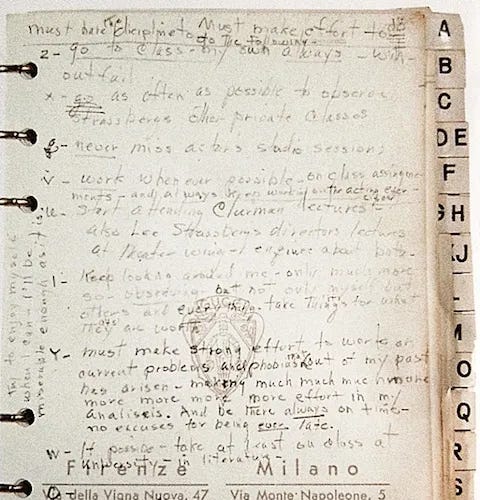 must have the dicipline to Must make effort to do
do the following -
z - go to class - my own always - with-
out fail
x - go as often as possible to observe
Strassberg's other private classes
g - never miss actors studio sessions
v - work whenever possible - on class assignme-
ments - and always keep working on the acting exer-
cises
u - start attending Clurman lectures -
also Lee Strasberg's directors lectures
at theater wing - enquire about both
l - Keep looking around me - only much more
so - observing - but not only myself but
others and everything - take things for what
they are worth
Y - must make strong effort to work on
current problems and phobias that out of my past
has arisen - making much much much more
more more more more effort in my
analisis. And be there always on time -
no excuses for being ever late.
w - If possible - take at least one class at
university - in literature -
try to enjoy myself
when I can - I'll be
miserable enough as it is
GUCCI
Firenze Milano
Via della Vigna Nuova, 47 Via Monte Napoleone, 5
A
B
C
DE
F
GH
KJ
L
M
O
Q
R
S